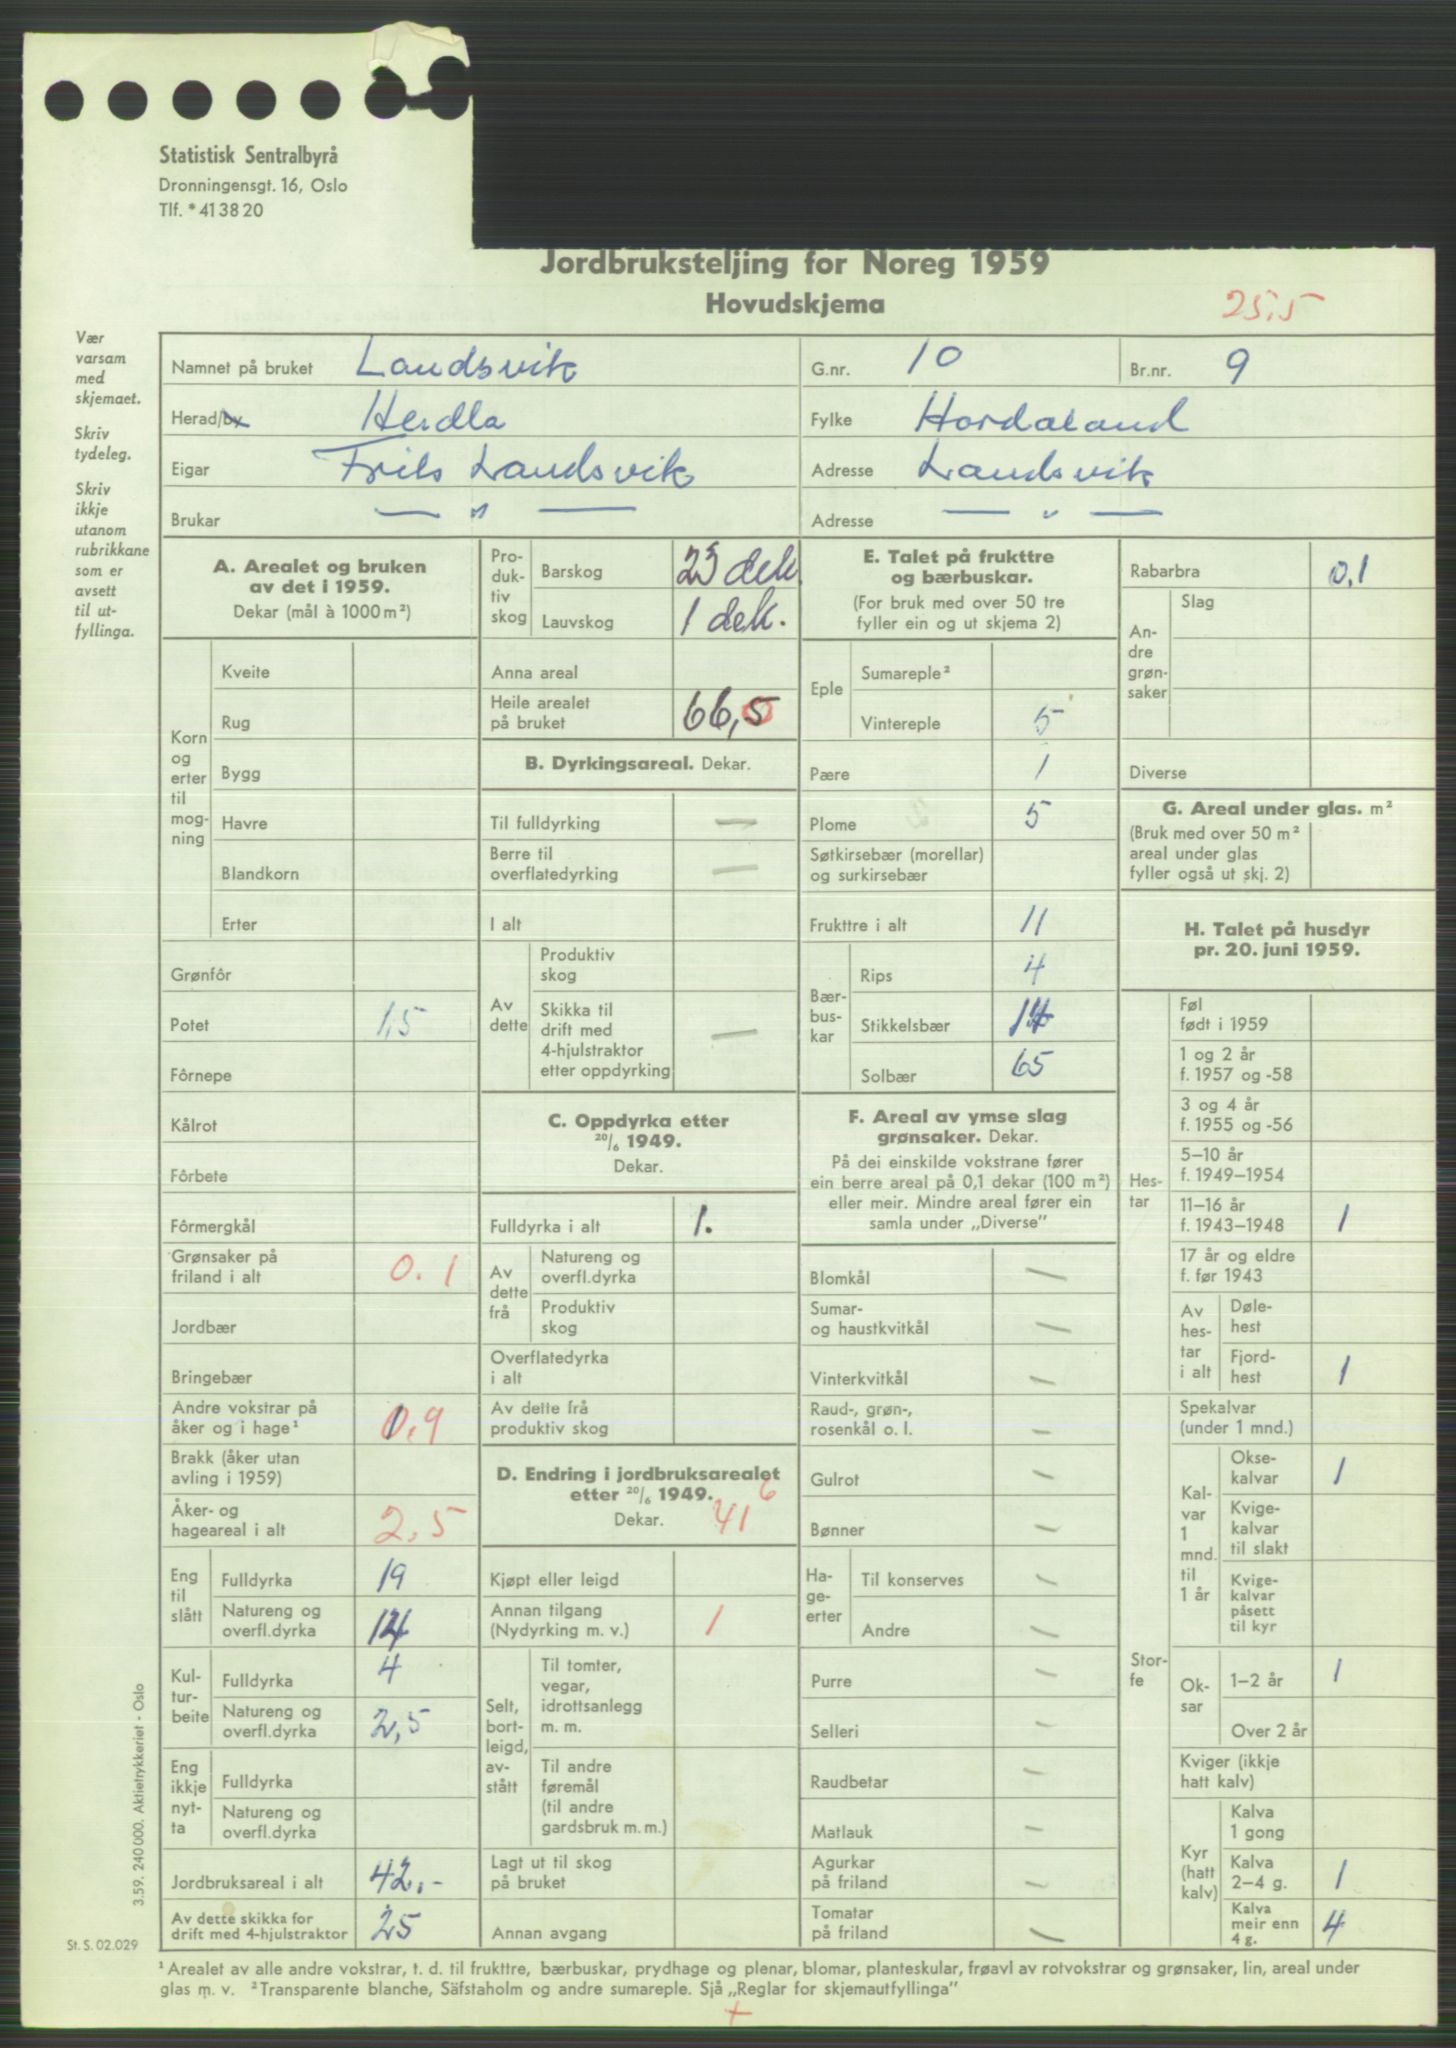 Statistisk Sentralbyrå
Dronningensgt. 16, Oslo
Tlf. *41 38 20
Jordbruksteljing for Noreg 1959
Hovudskjema
25,5
Vær varsam med skjemaet.
Skriv tydeleg.
Skriv ikkje utanom rubrikkane som er avsett til utfyllinga.
Namnet på bruket Landsvik G.nr. 10 Br.nr. 9
Herad/by Herdla Fylke Hordaland
Eigar Frits Landsvik Adresse Landsvik
Brukar — " — Adresse — " —
A. Arealet og bruken av det i 1959.
Dekar (mål à 1000 m²)
Korn og erter til mogning
Kveite
Rug
Bygg
Havre
Blandkorn
Erter
Grønfôr
Potet 1,5
Fôrnepe
Kålrot
Fôrbete
Fôrmergkål
Grønsaker på friland i alt 0.1
Jordbær
Bringebær
Andre vokstrar på åker og i hage¹ 0,9
Brakk (åker utan avling i 1959)
Åker- og hageareal i alt 2,5
Eng til slått
Fulldyrka 19
Natureng og overfl.dyrka 14
Kulturbeite
Fulldyrka 4
Natureng og overfl.dyrka 2,5
Eng ikkje nytta
Fulldyrka
Natureng og overfl.dyrka
Jordbruksareal i alt 42,-
Av dette skikka for drift med 4-hjulstraktor 25
Produktiv skog
Barskog 23 dek.
Lauvskog 1 dek.
Anna areal
Heile arealet på bruket 66,5
B. Dyrkingsareal. Dekar.
Til fulldyrking —
Berre til overflatedyrking —
I alt
Av dette
Produktiv skog
Skikka til drift med 4-hjulstraktor etter oppdyrking —
C. Oppdyrka etter 20/6 1949.
Dekar.
Fulldyrka i alt 1.
Av dette frå
Natureng og overfl.dyrka
Produktiv skog
Overflatedyrka i alt
Av dette frå produktiv skog
D. Endring i jordbruksarealet etter 20/6 1949.
Dekar. 41 6
Kjøpt eller leigd
Annan tilgang (Nydyrking m. v.) 1
Selt, bortleigd, avstått
Til tomter, vegar, idrottsanlegg m. m.
Til andre føremål (til andre gardsbruk m. m.)
Lagt ut til skog på bruket
Annan avgang
E. Talet på frukttre og bærbuskar.
(For bruk med over 50 tre fyller ein og ut skjema 2)
Eple
Sumareple²
Vintereple 5
Pære 1
Plome 5
Søtkirsebær (morellar) og surkirsebær
Frukttre i alt 11
Bærbuskar
Rips 4
Stikkelsbær 14
Solbær 65
F. Areal av ymse slag grønsaker. Dekar.
På dei einskilde vokstrane fører ein berre areal på 0,1 dekar (100 m²) eller meir. Mindre areal fører ein samla under „Diverse”
Blomkål —
Sumar- og haustkvitkål —
Vinterkvitkål —
Raud-, grøn-, rosenkål o. l. —
Gulrot —
Bønner —
Hageerter
Til konserves —
Andre —
Purre —
Selleri —
Raudbetar —
Matlauk —
Agurkar på friland —
Tomatar på friland —
Rabarbra 0,1
Andre grønsaker
Slag
Diverse
G. Areal under glas. m²
(Bruk med over 50 m² areal under glas fyller også ut skj. 2)
H. Talet på husdyr pr. 20. juni 1959.
Hestar
Føl født i 1959
1 og 2 år f. 1957 og -58
3 og 4 år f. 1955 og -56
5–10 år f. 1949–1954
11–16 år f. 1943–1948 1
17 år og eldre f. før 1943
Av hestar i alt
Dølehest
Fjordhest 1
Storfe
Spekalvar (under 1 mnd.)
Kalvar 1 mnd. til 1 år
Oksekalvar 1
Kvigekalvar til slakt
Kvigekalvar påsett til kyr
Oksar
1–2 år 1
Over 2 år
Kviger (ikkje hatt kalv)
Kyr (hatt kalv)
Kalva 1 gong
Kalva 2–4 g. 1
Kalva meir enn 4 g. 4
3.59. 240 000. Aktietrykkeriet - Oslo
St. S. 02.029
¹ Arealet av alle andre vokstrar, t. d. til frukttre, bærbuskar, prydhage og plenar, blomar, planteskular, frøavl av rotvokstrar og grønsaker, lin, areal under
glas m. v. ² Transparente blanche, Säfstaholm og andre sumareple. Sjå „Reglar for skjemautfyllinga”
+